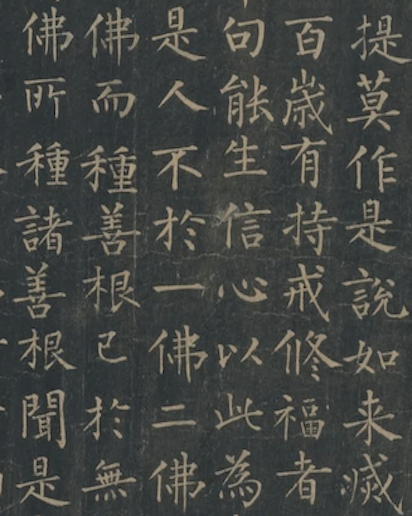 提莫作是說如来滅
百歳有持戒修福者
句能生信心以此為
是人不於一佛二佛
佛而種善根已於無
佛所種諸善根聞是